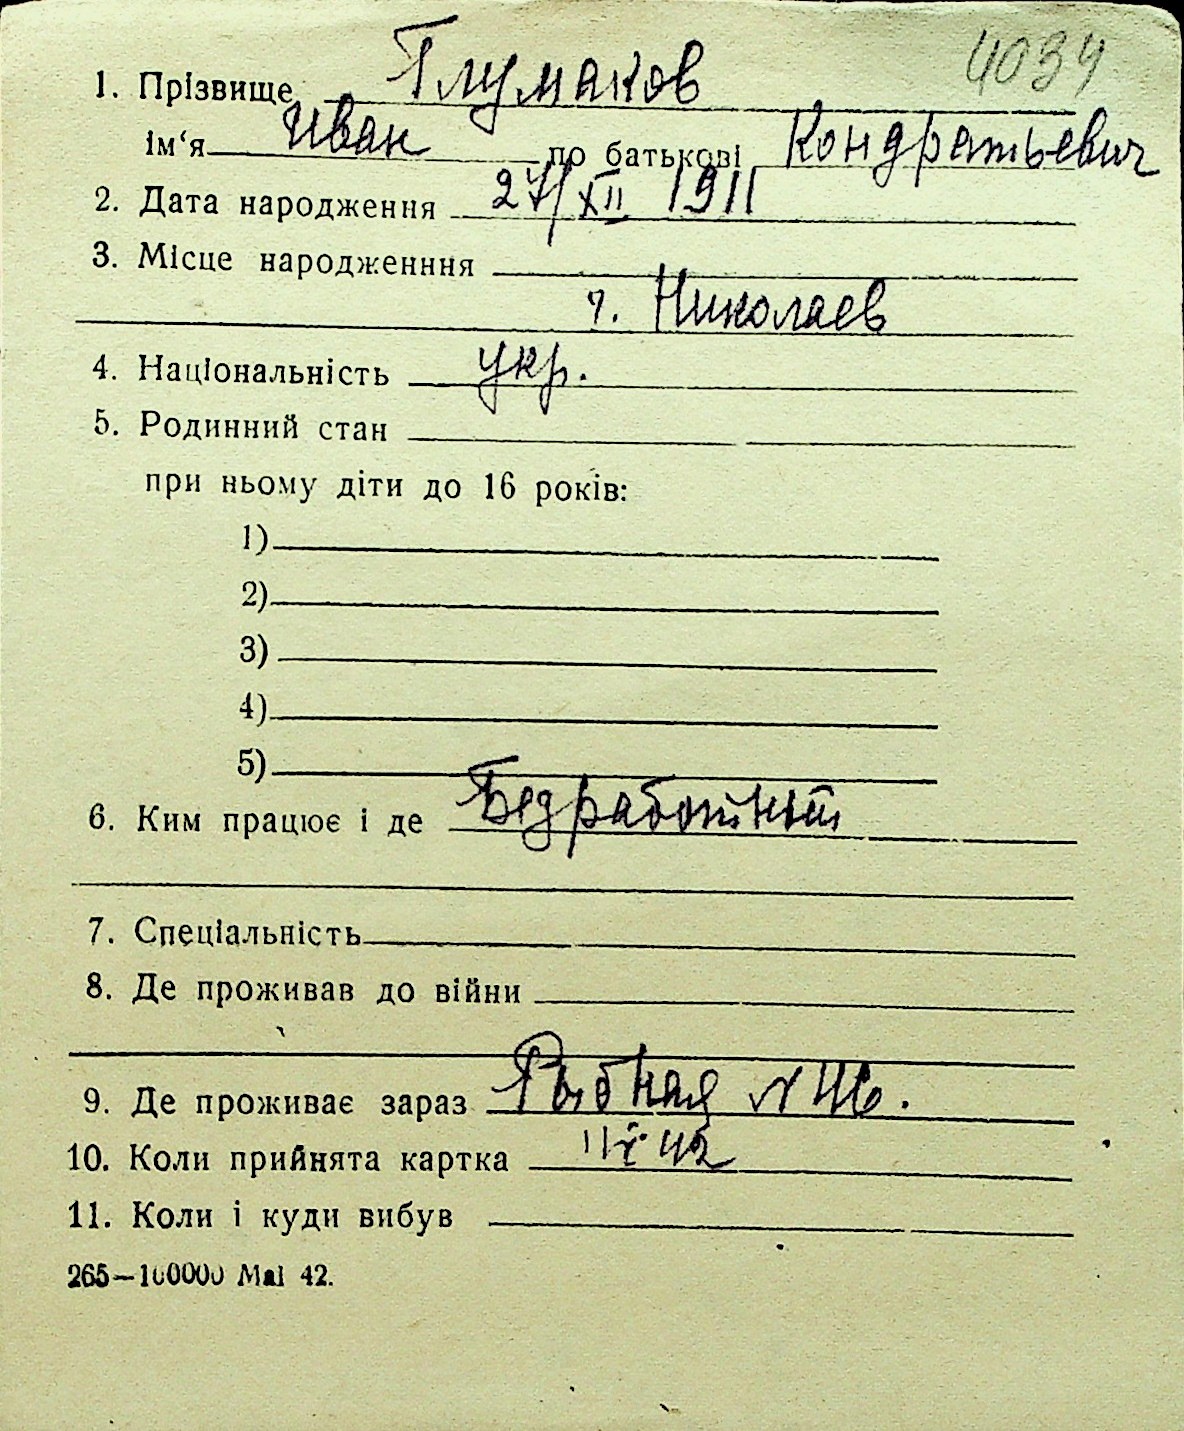 4034
1. Прізвище Глумаков
ім‘я Иван по батькові Кондратьевич
2. Дата народження 27/XII 1911
3. Місце народженння
г. Николаев
4. Національність укр.
5. Родинний стан
при ньому діти до 16 років:
1)
2)
3)
4)
5)
6. Ким працює і де
7. Спеціальність
8. Де проживав до війни
9. Де проживає зараз Рыбная № 46.
10. Коли прийнята картка
11. Коли і куди вибув
265—100000 Маі 42.